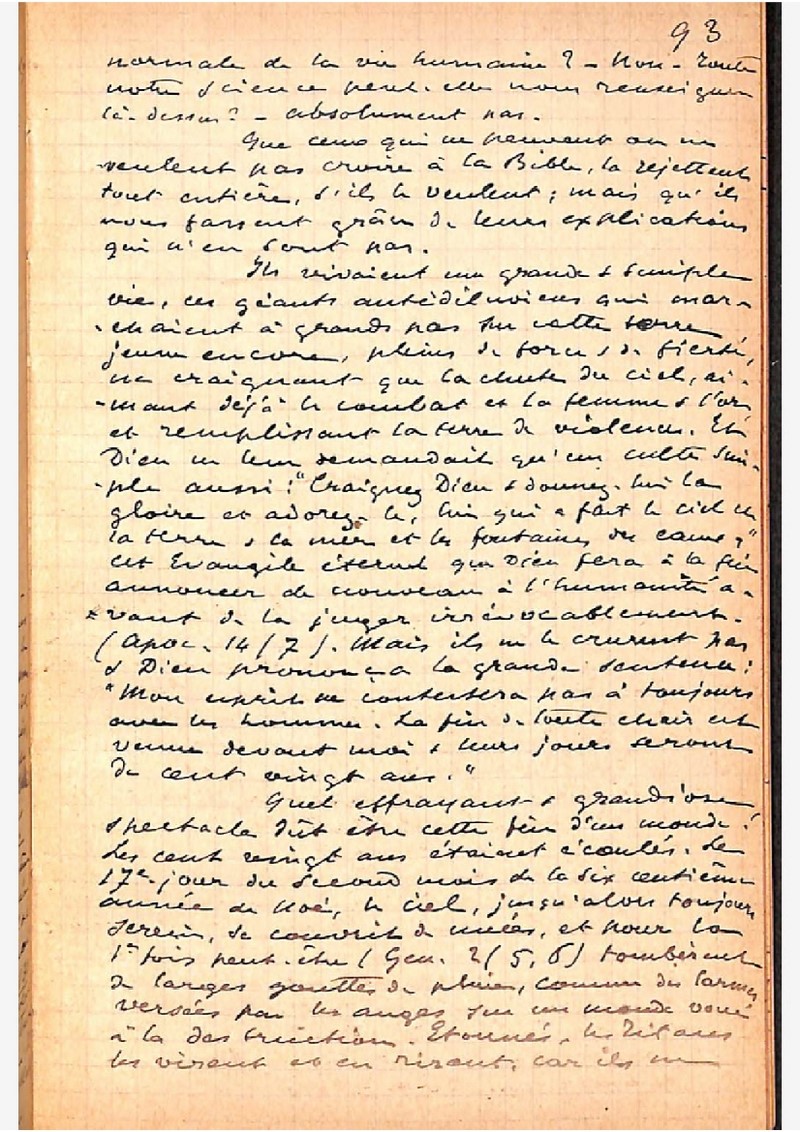 93
normale de la vie humaine? - Non - Toute
notre science peut-elle nous renseigner
là-dessus? - absolument pas.
Que ceux qui ne peuvent ou ne
veulent pas croire à la Bible, la rejettent
tout entière, s'ils le veulent; mais qu'ils
nous fassent grâce de leurs explications
qui n'en sont pas.
Ils vivaient une grande & simple
vie, ces géants antédiluviens qui mar-
-chaient à grands pas sur cette terre
jeune encore, pleins de force & de fierté,
ne craignant que la chute du ciel, ai-
-mant déjà le combat et la femme & l'or
et remplissant la terre de violence. Et
Dieu ne leur demandait qu'un culte sim-
-ple aussi: "Craignez Dieu & donnez-lui la
gloire et adorez-le, lui qui a fait le ciel et
la terre & la mer et les fontaines des eaux,"
cet Evangile éternel que Dieu fera à la fin
annoncer de nouveau à l'humanité a-
-vant de la juger irrévocablement.
(Apoc. 14/7). Mais ils ne le crurent pas
& Dieu prononça la grande sentence:
"Mon esprit ne contestera pas à toujours
avec les hommes. La fin de toute chair est
venue devant moi & leurs jours seront
de cent vingt ans."
Quel effrayant & grandiose
spectacle dût être cette fin d'un monde!
Les cent vingt ans étaient écoulés. Le
17e jour du second mois de la six centième
année de Noé, le ciel, jusqu'alors toujours
serein, se couvrit de nuées, et pour la
1e fois peut-être (Gen. 2/5,6) tombèrent
de larges gouttes de pluie, comme des larmes
versées par les anges sur un monde voué
à la destruction. Etonnés, les Titans
les virent et en rirent, car ils ne